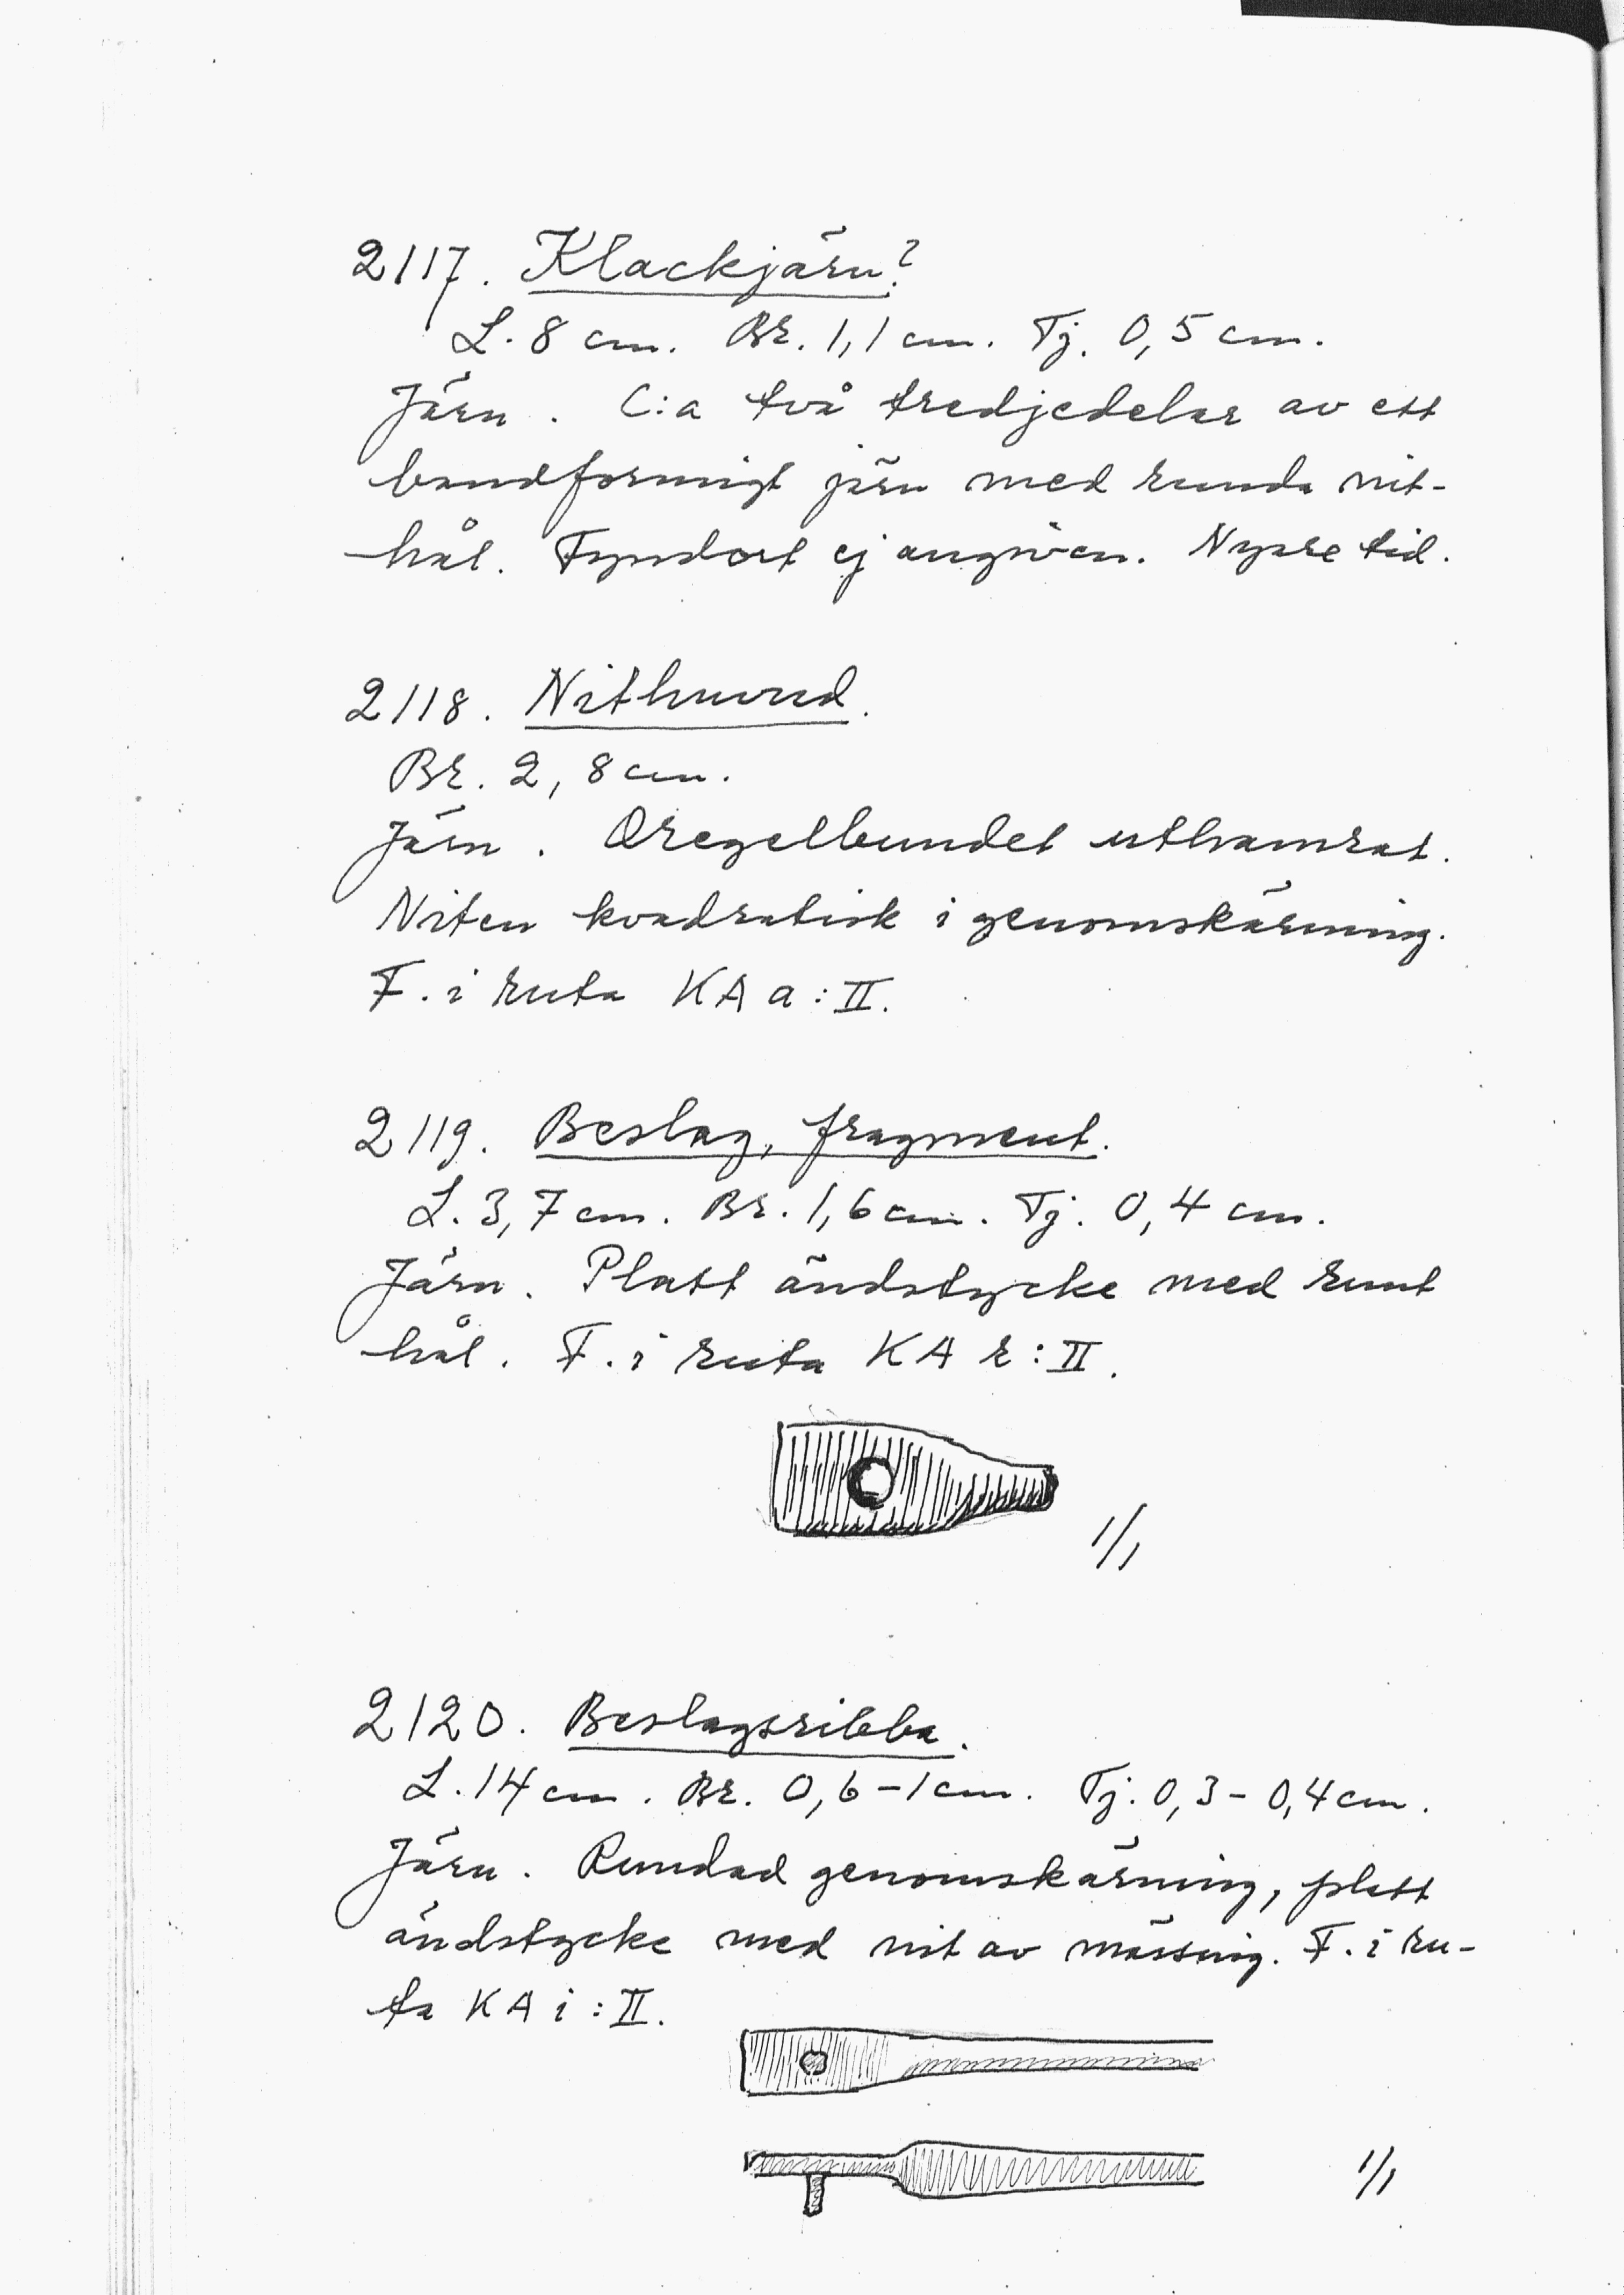 2117. Klackjärn?
L. 8 cm. Br. 1,1 cm. Tj. 0,5 cm.
Järn. C:a två tredjedelar av ett
bandformigt järn med runda nit-
hål. Fyndort ej angiven. Nyare tid.
2118. Nithuvud.
Br. 2,8 cm.
Järn. Oregelbundet uthamrat.
Niten kvadratisk i genomskärning.
F. i ruta KA a:II.
2119. Beslag, fragment.
L. 3,7 cm. Br. 1,6 cm. Tj. 0,4 cm.
Järn. Platt ändstycke med runt
hål. F. i ruta KA r:II.
1/1
2120. Beslagsribba.
L. 14 cm. Br. 0,6-1 cm. Tj. 0,3-0,4 cm.
Järn. Rundad genomskärning, platt
ändstycke med nit av mässing. F. i ru-
ta KA i:II.
1/1